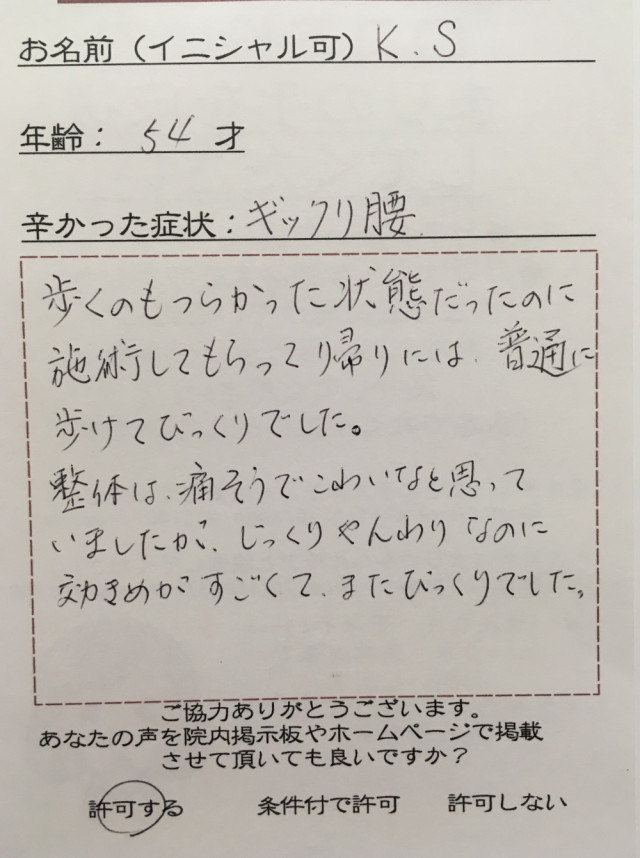 お名前（イニシャル可）K.S
年齢：54才
辛かった症状：ギックリ腰
歩くのもつらかった状態だったのに
施術してもらって帰りには、普通に
歩けてびっくりでした。
整体は、痛そうでこわいなと思って
いましたが、じっくりやんわりなのに
効きめがすごくて、またびっくりでした。
ご協力ありがとうございます。
あなたの声を院内掲示板やホームページで掲載
させて頂いても良いですか？
許可する 条件付で許可 許可しない